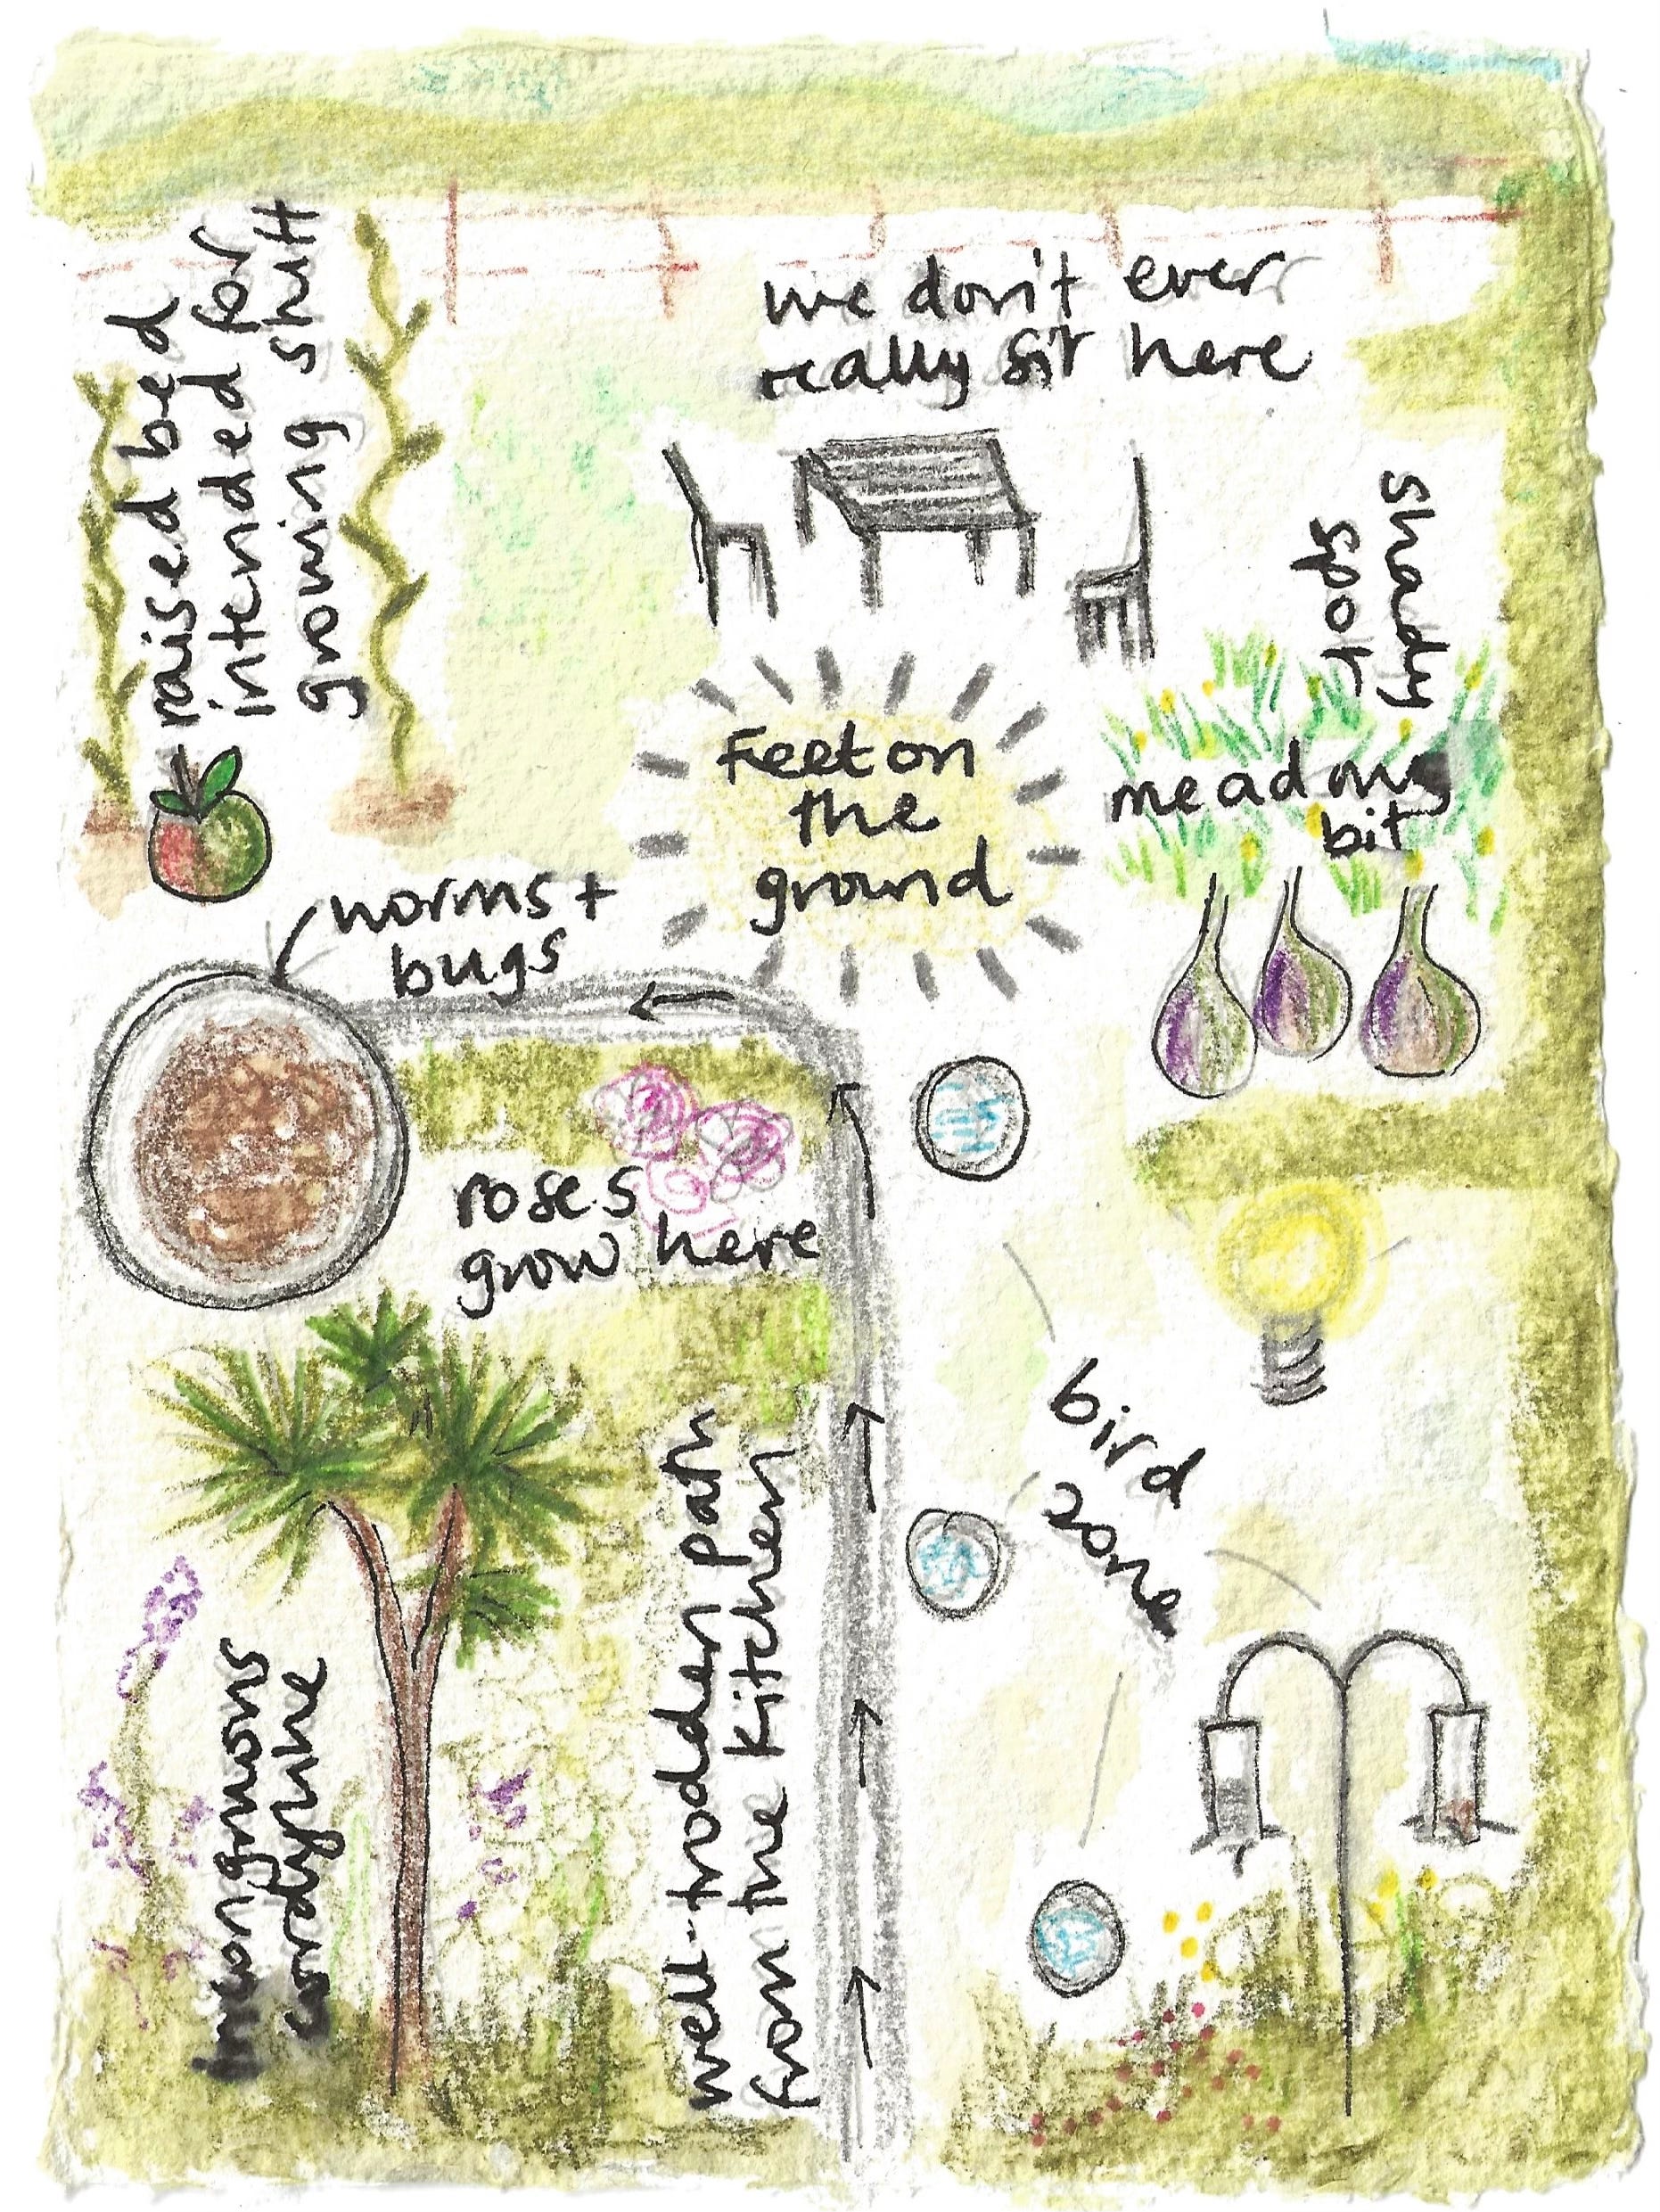 raised bed
intended for
growing shit
we don't ever
really sit here
shady
spot
Feet on
the
ground
meadow
bit
worms +
bugs
roses
grow here
bird
zone
incongruous
cordyline
well-trodden path
from the kitchen